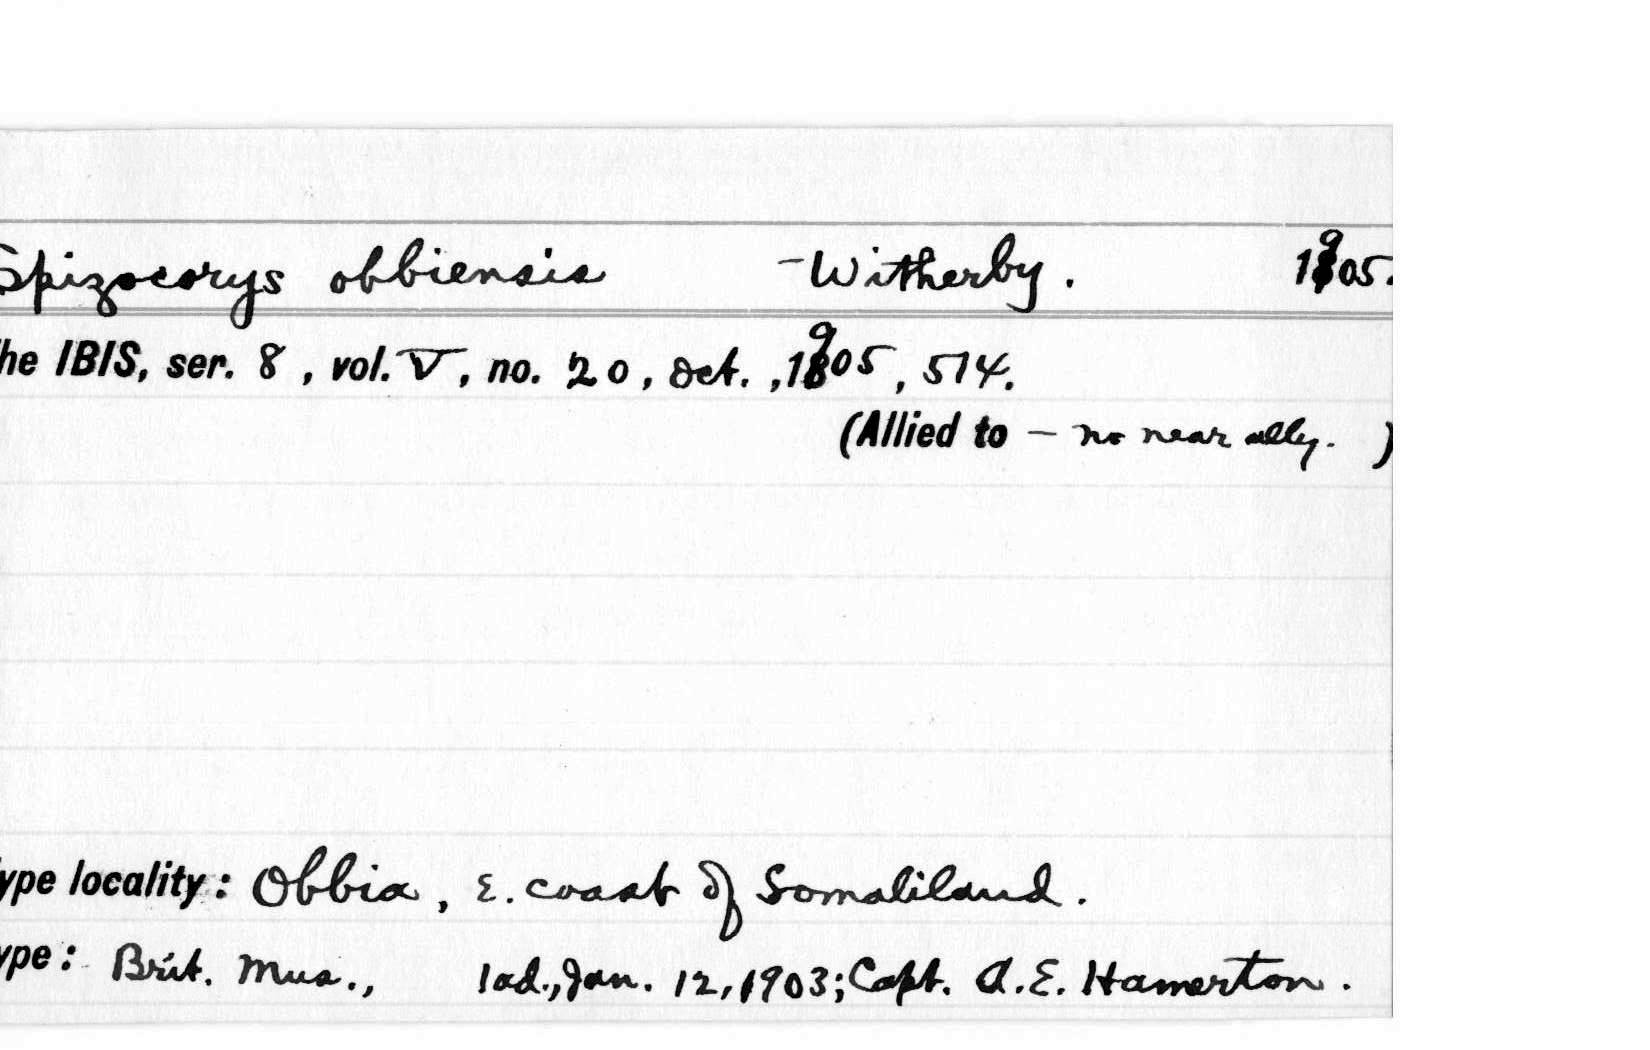 Spizocorys obbiensis - Witherby. 1905.
he IBIS, ser. 8, vol. V, no. 20, Oct., 1905, 514.
(Allied to - no near ally. )
ype locality: Obbia, E. coast of Somaliland.
ype: Brit. Mus., 1ad., Jan. 12, 1903; Capt. A.E. Hamerton.